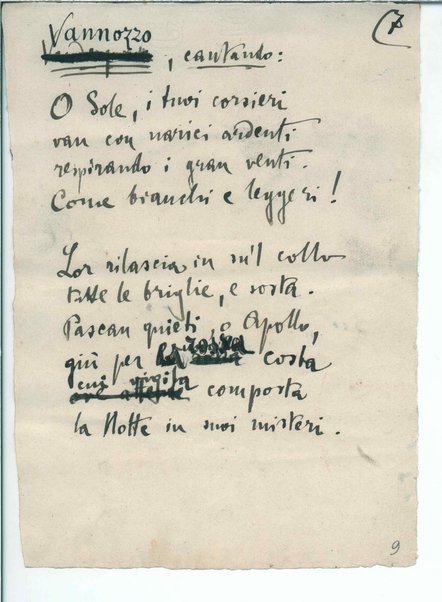 7
Vannozzo
, cantando:
O Sole, i tuoi corsieri
van con narici ardenti
respirando i gran venti.
Come bianchi e leggeri!
Lor rilascia in su'l collo
tutte le briglie, e sosta.
Pascan quieti, o Apollo,
giù per la rozza costa
cui vigila composta
la Notte in suoi misteri.
9